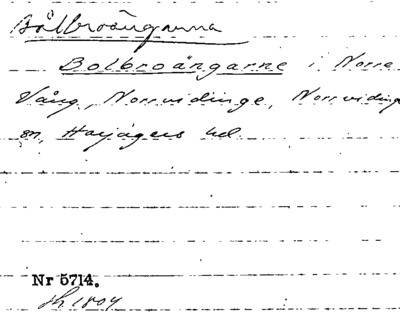 Bålbroängarna
Bolbroängarne i Norre
Vång, Norrvidinge, Norrviding
sn, Harjagers hd.
Nr 5714.
sk 1804